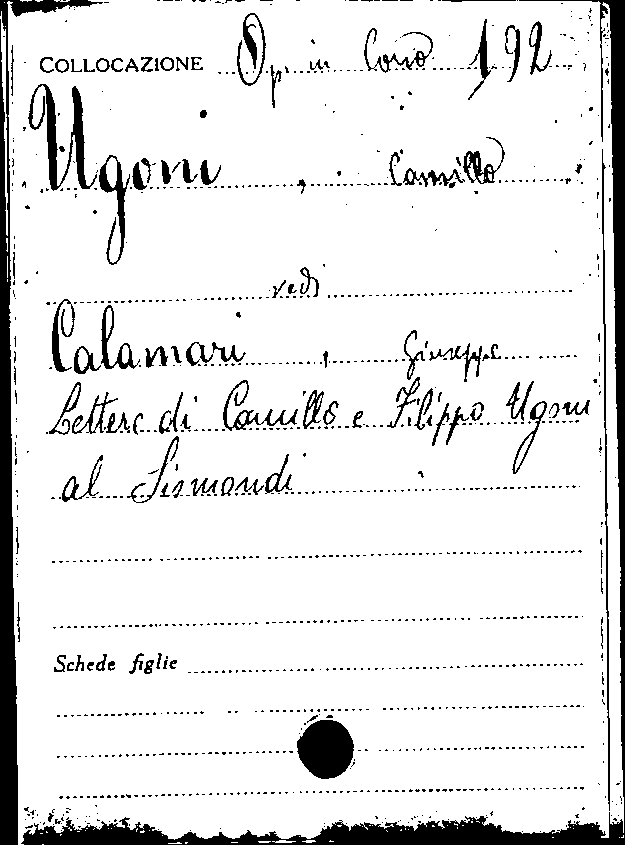 COLLOCAZIONE Op. in Corso 192
Ugoni, Camillo
vedi
Calamari, Giuseppe
Lettere di Camillo e Filippo Ugoni
al Sismondi
Schede figlie